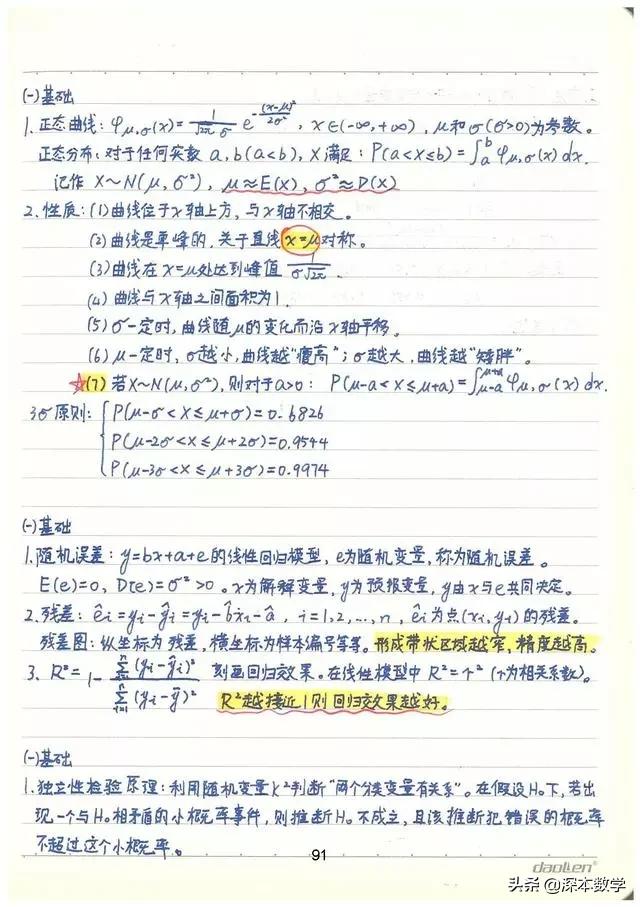 (一)基础
1. 正态曲线：φμ,σ(x)=1/(√2π σ) e^(-(x-μ)²/2σ²)，x∈(-∞,+∞)，μ和σ(σ>0)为参数。
正态分布：对于任何实数 a,b(a<b)，X满足：P(a<X≤b)=∫_a^b φμ,σ(x)dx.
记作 X~N(μ,σ²)，μ≈E(X)，σ²≈D(X)
2. 性质：(1)曲线位于x轴上方，与x轴不相交。
(2)曲线是单峰的，关于直线x=μ对称。
(3)曲线在x=μ处达到峰值 1/(σ√2π).
(4)曲线与x轴之间面积为1.
(5)σ一定时，曲线随μ的变化而沿x轴平移。
(6)μ一定时，σ越小，曲线越“瘦高”；σ越大，曲线越“矮胖”。
☆(7)若X~N(μ,σ²)，则对于a>0：P(μ-a<X≤μ+a)=∫_{μ-a}^{μ+a} φμ,σ(x)dx.
3σ原则：{P(μ-σ<X≤μ+σ)=0.6826
P(μ-2σ<X≤μ+2σ)=0.9544
P(μ-3σ<X≤μ+3σ)=0.9974
(一)基础
1. 随机误差：y=bx+a+e的线性回归模型，e为随机变量，称为随机误差。
E(e)=0，D(e)=σ²>0。x为解释变量，y为预报变量，y由x与e共同决定。
2. 残差：êi=yi-ŷi=yi-b̂xi-â，i=1,2,…,n，êi为点(xi,yi)的残差。
残差图：纵坐标为残差，横坐标为样本编号等等。形成带状区域越窄，精度越高。
3. R²=1-∑_{i=1}^n(yi-ŷi)²/∑_{i=1}^n(yi-ȳ)² 刻画回归效果。在线性模型中R²=r²(r为相关系数)。
R²越接近1则回归效果越好。
(一)基础
1. 独立性检验原理：利用随机变量K²判断“两个分类变量有关系”。在假设H₀下，若出
现一个与H₀相矛盾的小概率事件，则推断H₀不成立，且该推断犯错误的概率
不超过这个小概率。
91
daolen®
头条@深本数学